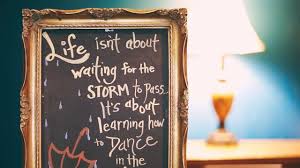 Life isn't about
waiting for the
STORM to Pass...
It's about
learning how
to Dance
in the